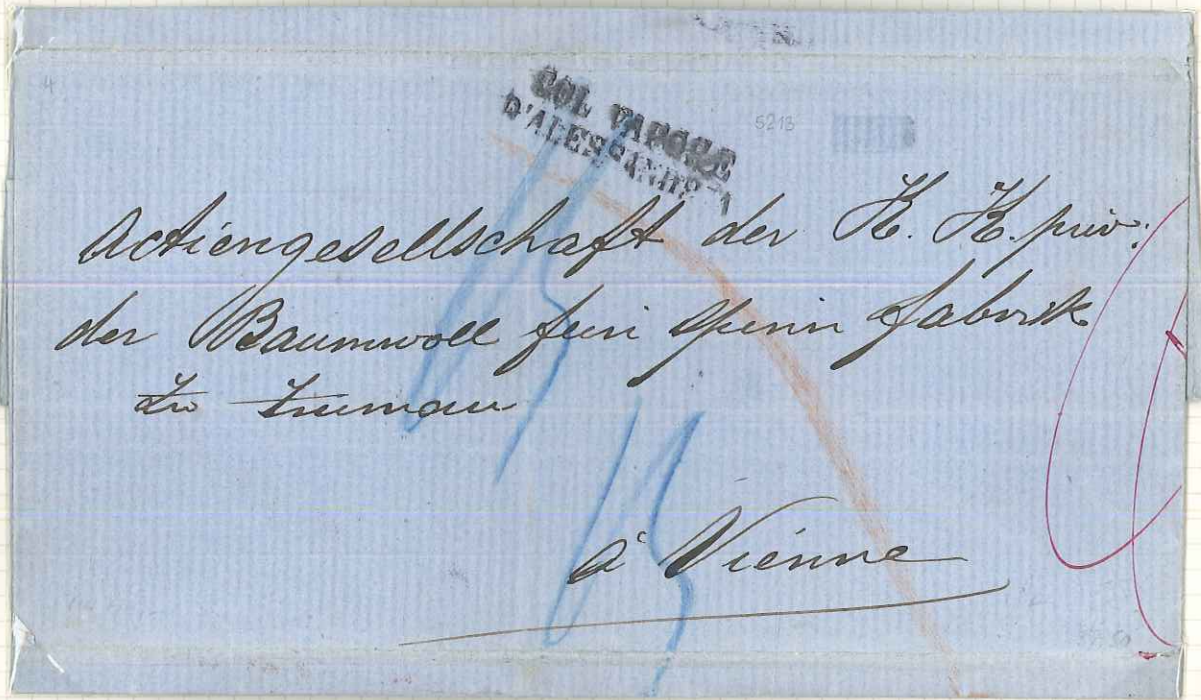 COL VAPORE
D'ALESSANDRIA
5213
Actiengesellschaft der K. K. priv:
der Baumwoll fein Spinn fabrik
zu
à Vienne